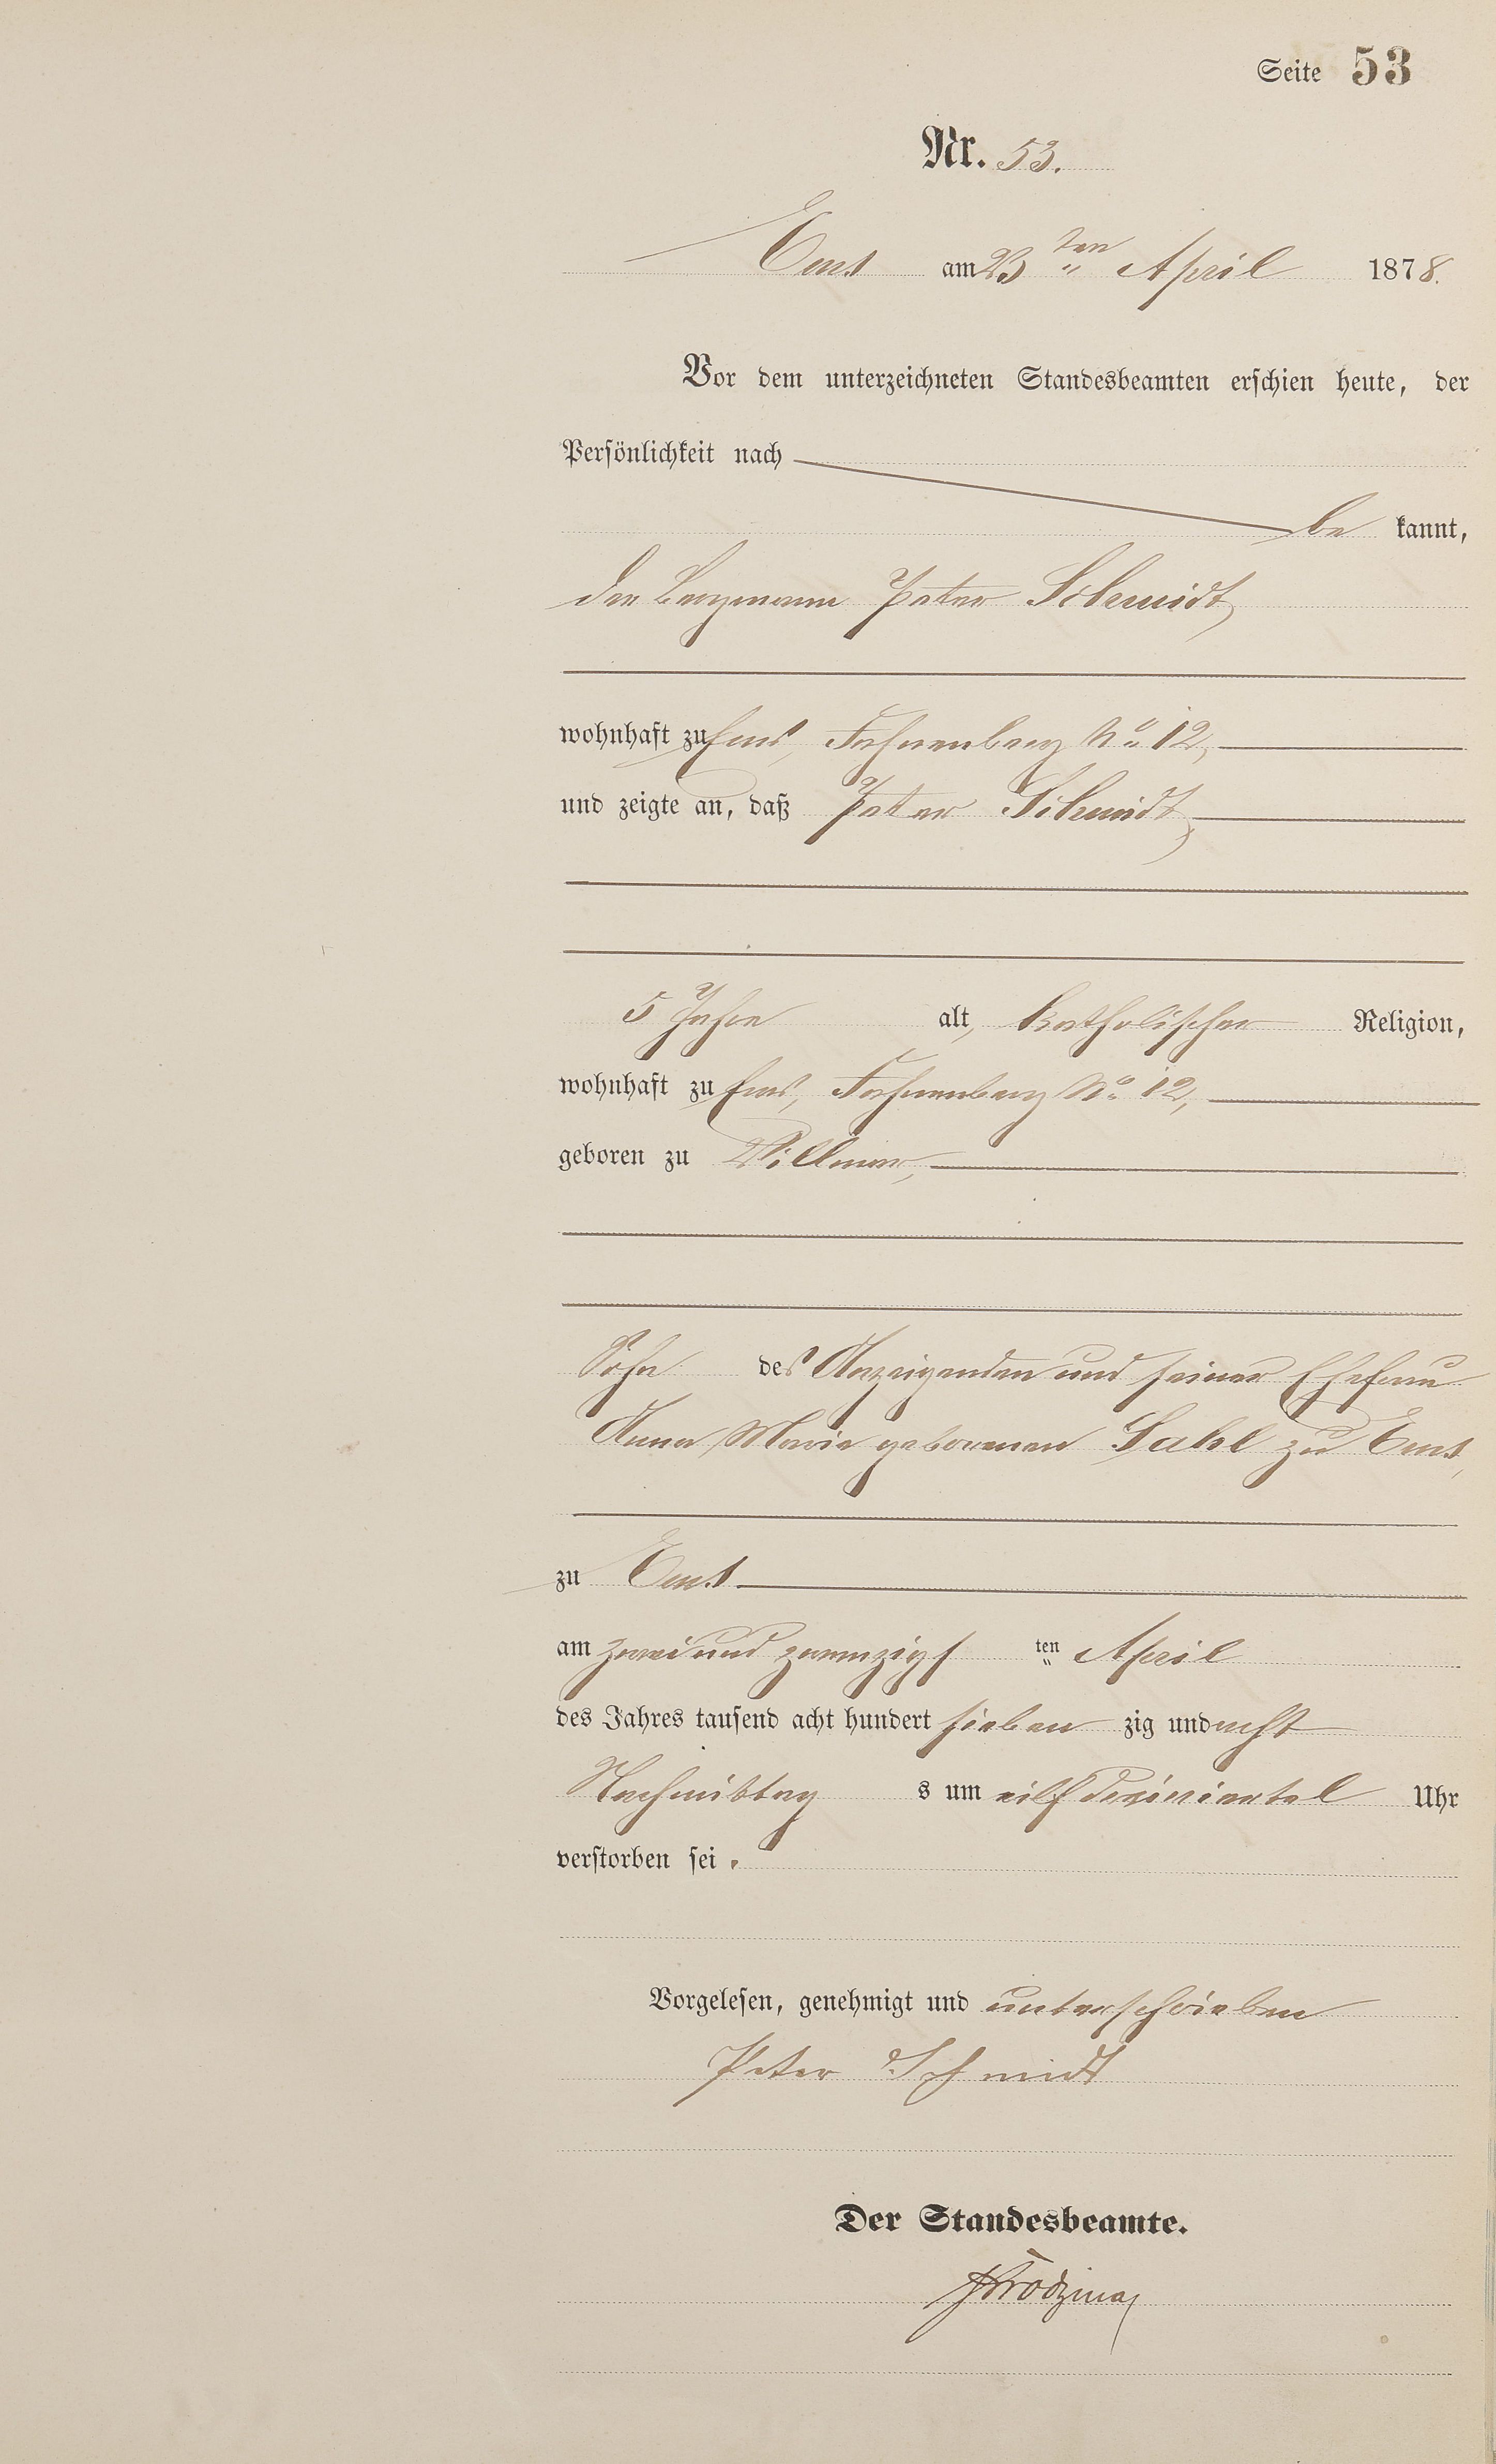 Seite 53
Nr. 53.
Ems am 23ten April 1878.
Vor dem unterzeichneten Standesbeamten erschien heute, der
Persönlichkeit nach
be kannt,
der Bergmann Peter Schmidt,
wohnhaft zu Ems, Fahnenberg No 12,
und zeigte an, daß Peter Schmidt,
5 Jahre alt, katholischer Religion,
wohnhaft zu Ems, Fahnenberg No 12,
geboren zu Villmar,
Sohn des Anzeigenden und seiner Ehefrau
Anna Marie geborenen Sahl zu Ems,
zu Ems
am zwei und zwanzigs ten April
des Jahres tausend acht hundert sieben zig und acht
Nachmittag s um eilf dreiviertel Uhr
verstorben sei.
Vorgelesen, genehmigt und unterschrieben
Peter Schmidt
Der Standesbeamte.